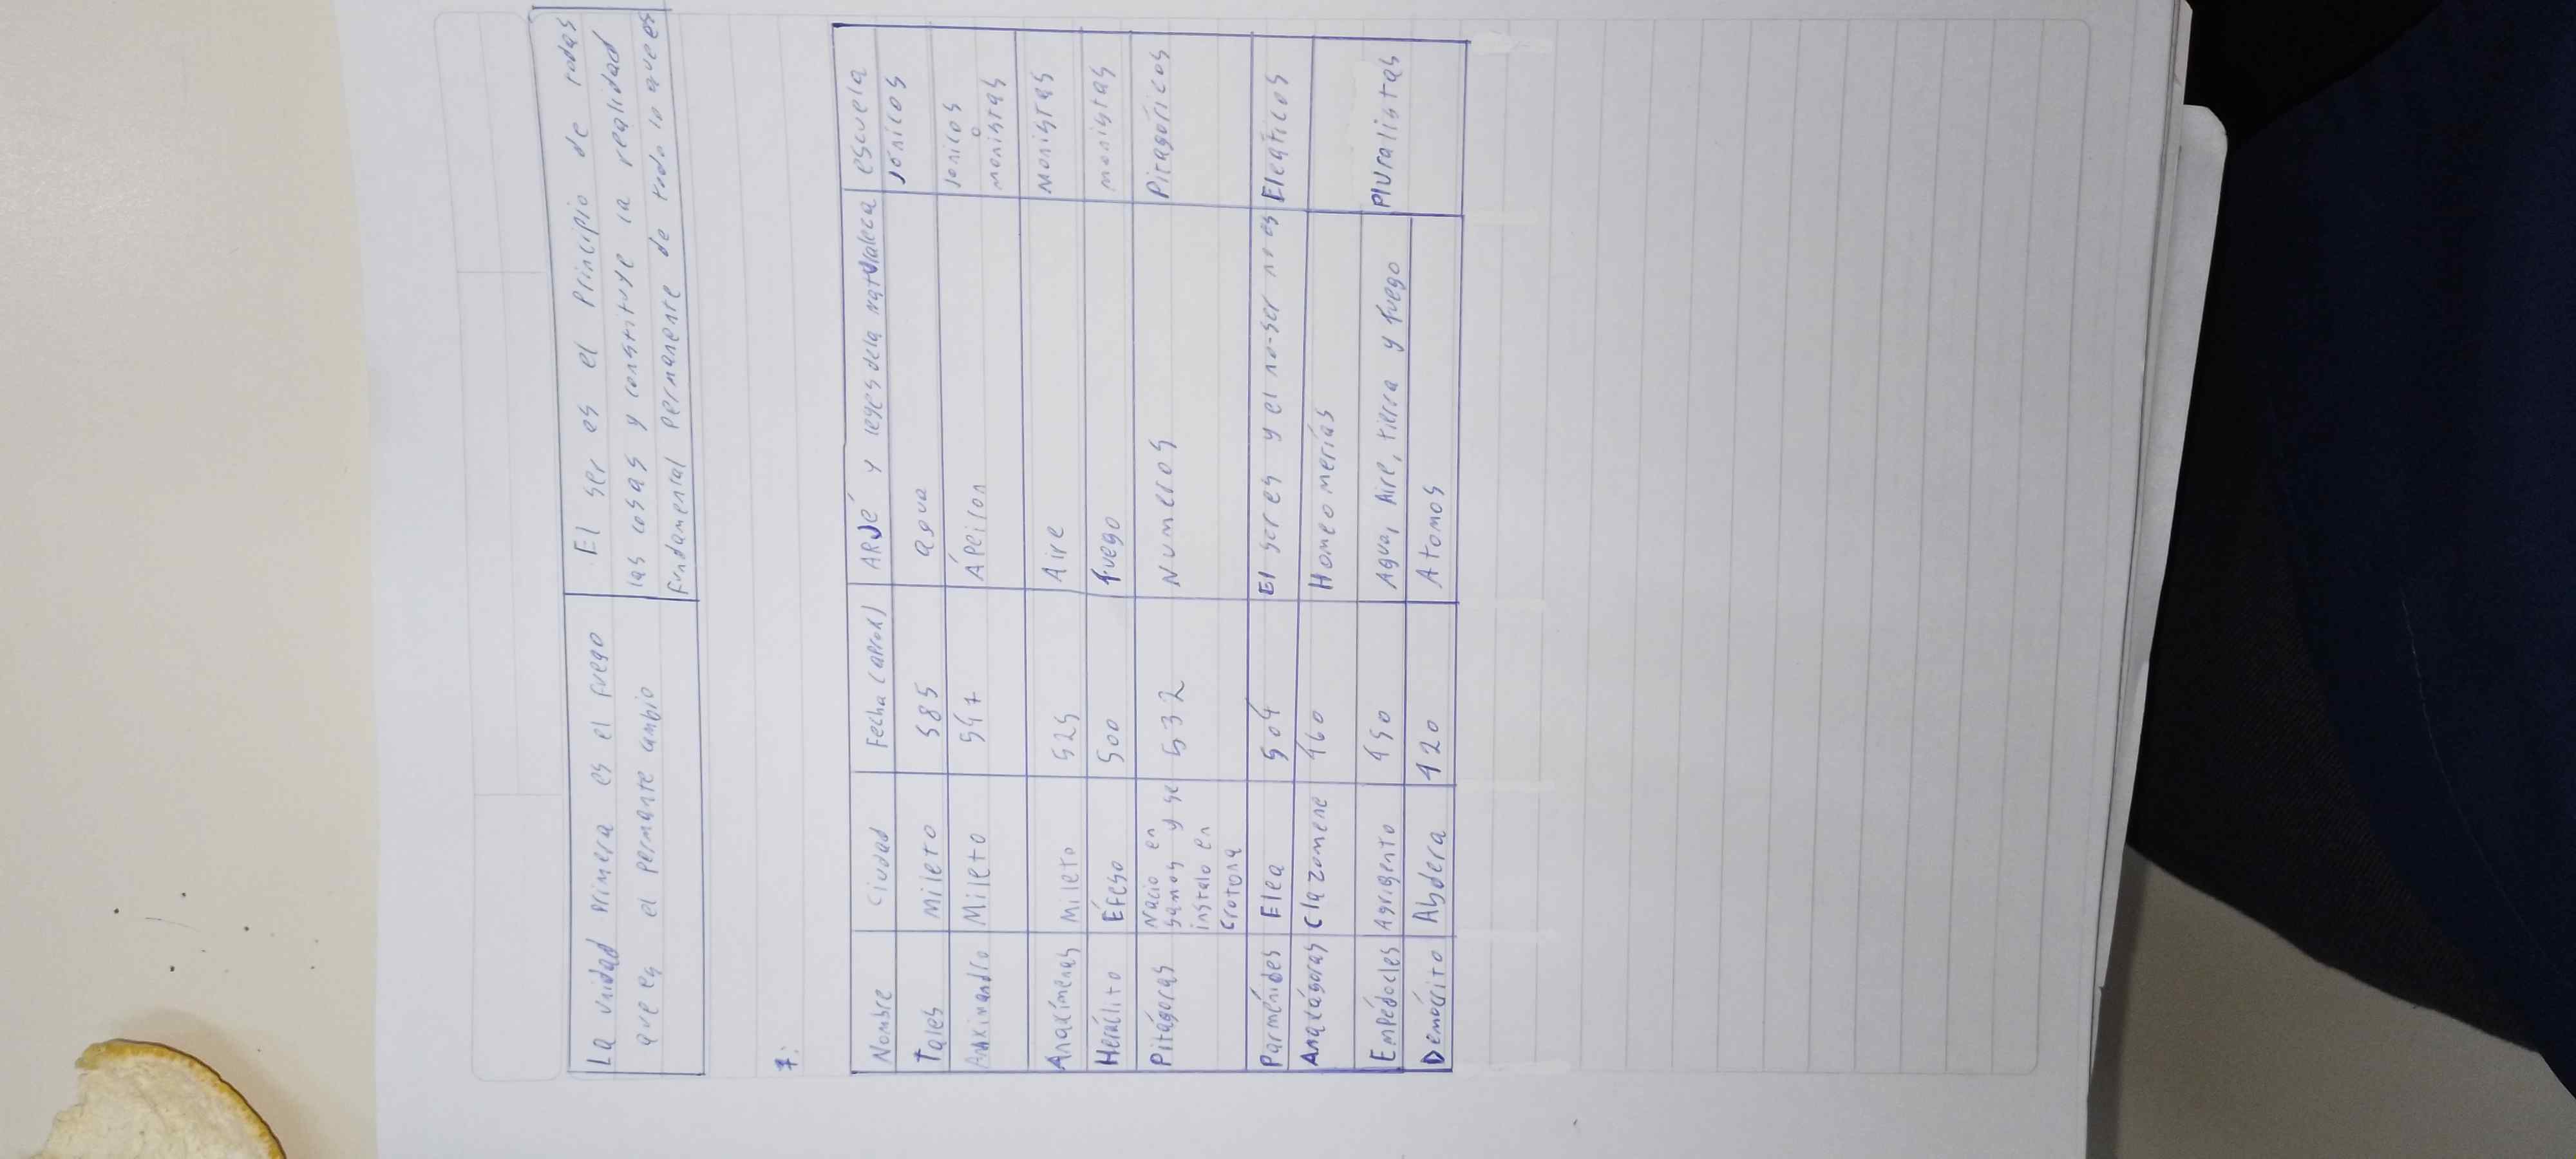 La unidad primera es el fuego
que es el permante cambio
El ser es el principio de todas
las cosas y constituye la realidad
fundamental permanente de todo lo que es
7:
Nombre Ciudad Fecha (aprox) ARJé y leges dela naturaleca escuela
Tales Mileto 585 agua Jónicos
Anaximandro Mileto 547 Ápeiron Jonicos o monistas
Anaxímenes Mileto 525 Aire Monistas
Heráclito Éfeso 500 fuego monistas
Pitágoras Nacio en samos y se instalo en Crotona 532 Numeros Pitagóricos
Parménides Elea 504 El ser es y el no-ser no es Eleáticos
Anaxágoras Clazomene 460 Homeomerías
Empédocles Agrigento 450 Agua, Aire, tierra y fuego Pluralistas
Demócrito Abdera 420 Atomos